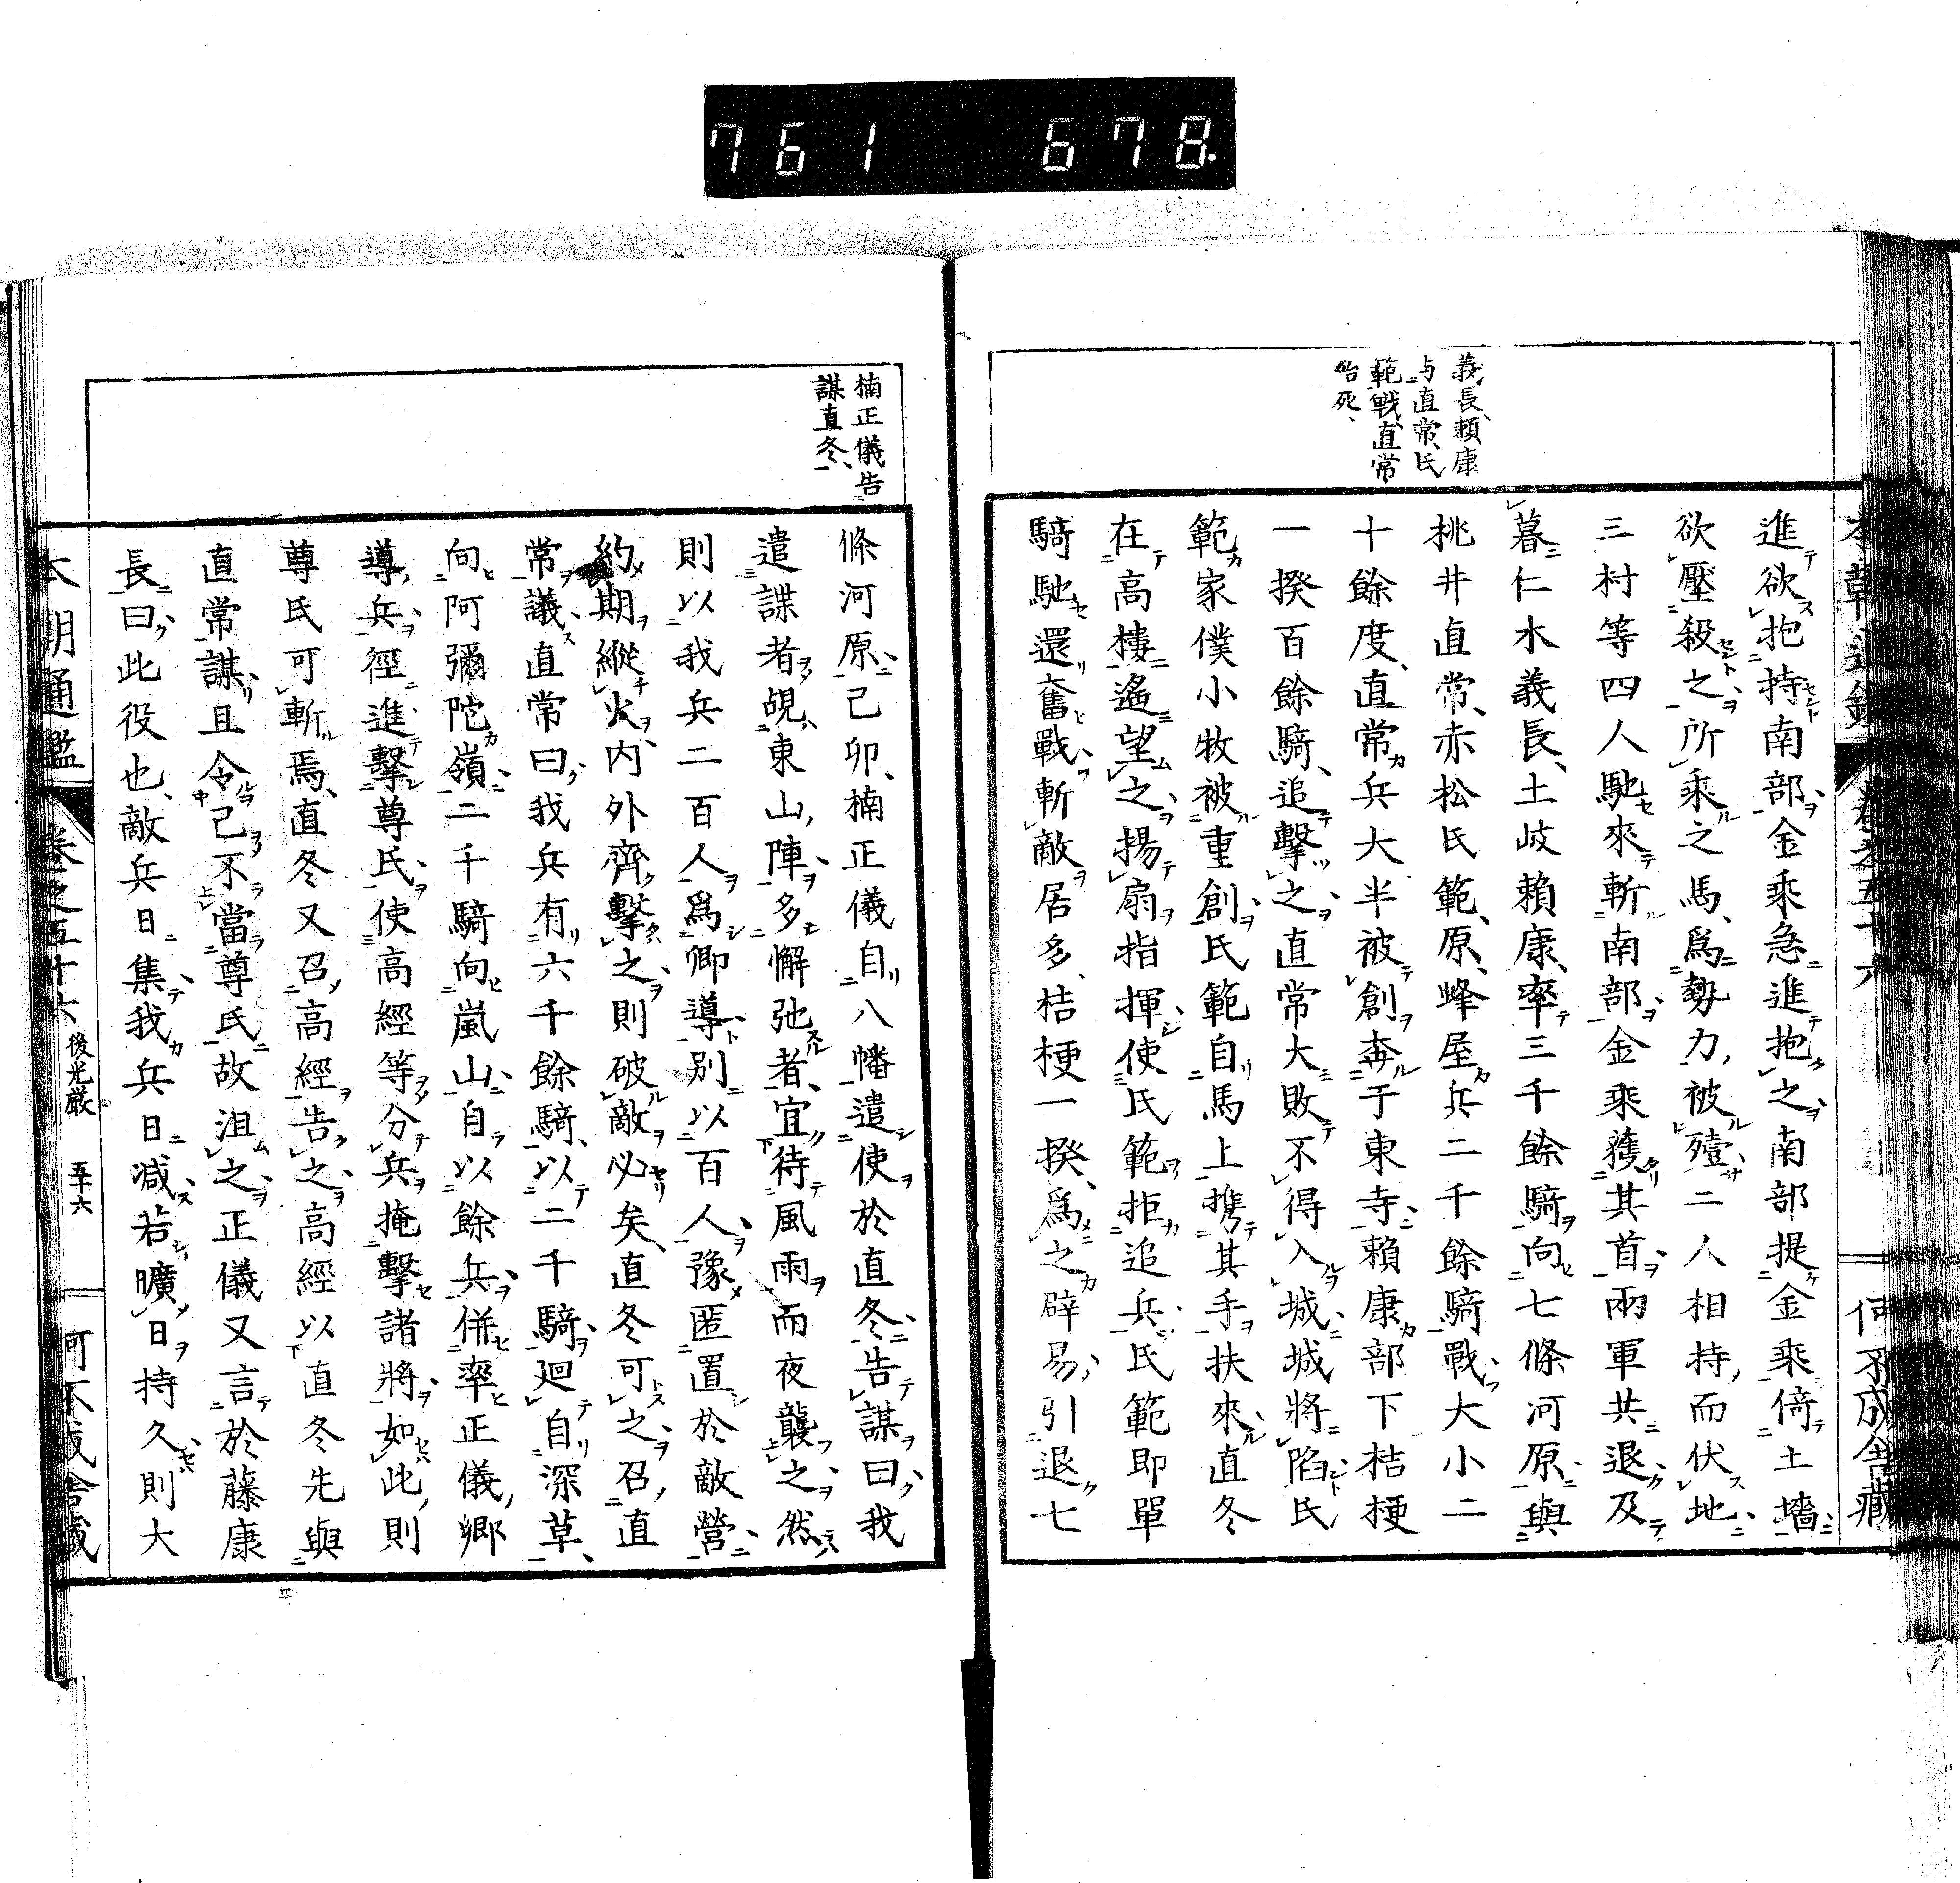 761 678.
義長、賴康
与直常、氏
範戰、直常
殆死、
進欲抱持南部金乘急進抱之南部提金乘倚土墻
欲壓殺之所乘之馬、爲勢力被殪二人相持而伏地
三村等四人馳來斬南部金乘獲其首兩軍共退及
暮仁木義長、土岐賴康、率三千餘騎向七條河原與
桃井直常、赤松氏範、原、蜂屋兵二千餘騎戰大小二
十餘度、直常兵大半被創奔于東寺賴康部下桔梗
一揆百餘騎、追擊之直常大敗不得入城城將陷氏
範家僕小牧被重創氏範自馬上携其手扶來直冬
在高樓遙望之揚扇指揮使氏範拒追兵氏範即單
騎馳還奮戰斬敵居多、桔梗一揆、爲之辟易、引退七
楠正儀告
謀直冬、
條河原己卯、楠正儀自八幡遣使於直冬告謀曰我
遣諜者覘東山陣多懈弛者、宜待風雨而夜襲之然
則以我兵二百人爲卿導別以百人豫匿置於敵營
約期縱火、內外齊擊之則破敵必矣、直冬可之召直
常議直常曰我兵有六千餘騎、以二千騎廻自深草、
向阿彌陀嶺二千騎向嵐山自以餘兵併率正儀鄉
導兵徑進擊尊氏使高經等分兵掩擊諸將如此則
尊氏可斬焉、直冬又召高經告之高經以直冬先與
直常謀且令己不當尊氏故沮之正儀又言於藤康
長曰、此役也、敵兵日集我兵日減若曠日持久則大
本朝通鑑 卷之五十六 後光嚴 五十六 何不成舍藏